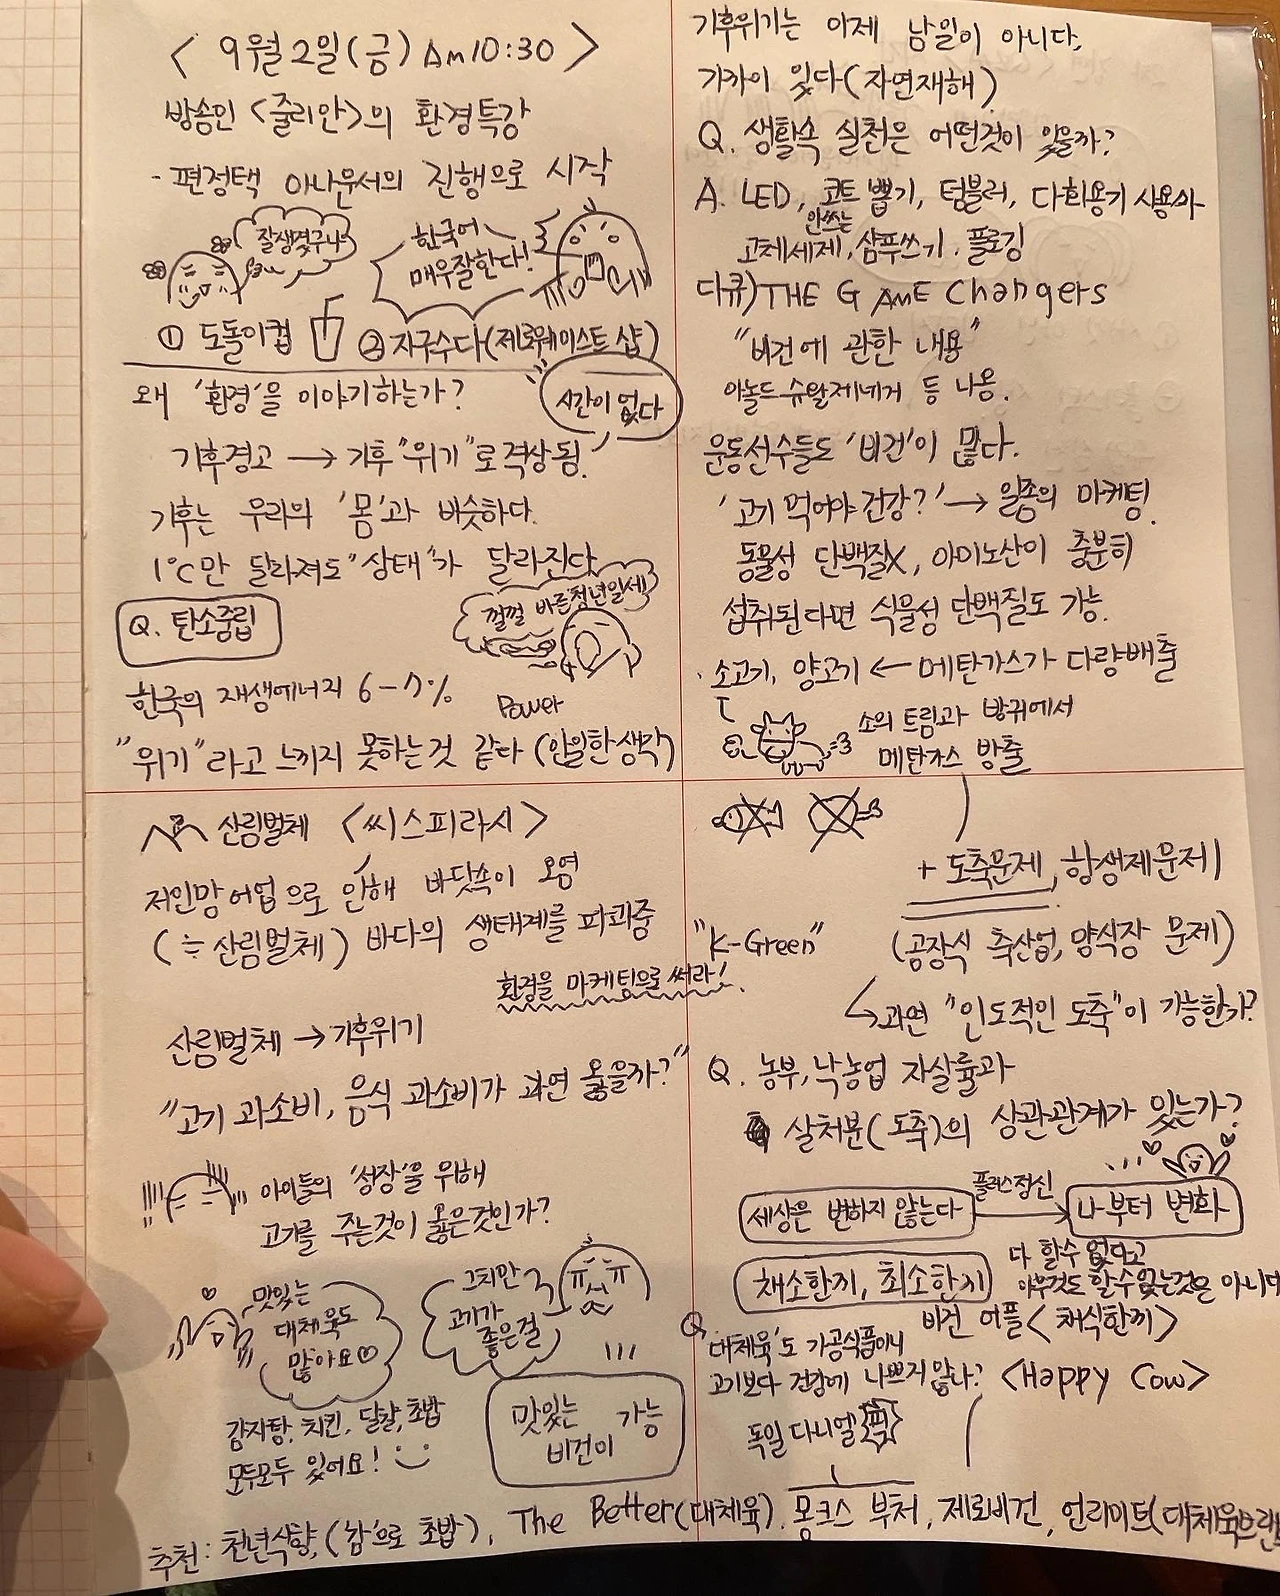 < 9월 2일(금) Am10:30 >
방송인 <줄리안>의 환경특강
- 편정택 아나운서의 진행으로 시작
잘생겼구나
한국어
매우잘한다!
① 도돌이컵 ② 지구수다(제로웨이스트 샵)
왜 '환경'을 이야기하는가?
시간이 없다
기후경고 → 기후"위기"로 격상됨.
기후는 우리의 '몸'과 비슷하다.
1℃만 달라져도 "상태"가 달라진다
껄껄 바른청년일세
Q. 탄소중립
한국의 재생에너지 6-7%
Power
"위기"라고 느끼지 못하는것 같다 (안일한생각)
기후위기는 이제 남일이 아니다.
가까이 있다(자연재해)
Q. 생활속 실천은 어떤것이 있을까?
A. LED, 코트 뽑기, 텀블러, 다회용기 사용
안쓰는
고체세제, 샴푸쓰기. 플로깅
다큐)THE GAmE Changers
"비건에 관한 내용"
아놀드 슈왈제네거 등 나옴.
운동선수들도 '비건'이 많다.
'고기 먹어야 건강?' → 일종의 마케팅.
동물성 단백질X, 아미노산이 충분히
섭취된다면 식물성 단백질도 가능.
· 소고기, 양고기 ← 메탄가스가 다량배출
소의 트림과 방귀에서
메탄가스 방출
산림벌채 <씨스피라시>
저인망어업으로 인해 바닷속이 오염
(≒산림벌채) 바다의 생태계를 파괴중
환경을 마케팅으로 써라!
산림벌채 → 기후위기
"고기 과소비, 음식 과소비가 과연 옳을까?"
아이들의 '성장'을 위해
고기를 주는것이 옳은것인가?
맛있는
대체육도
많아요♡
그치만
고기가
좋은걸
감자탕, 치킨, 달걀, 초밥
모두모두 있어요!
맛있는 가능
비건이
+ 도축문제, 항생제문제
"K-Green"
(공장식 축산업, 양식장 문제)
↳과연 "인도적인 도축"이 가능한가?
Q. 농부, 낙농업 자살률과
살처분(도축)의 상관관계가 있는가?
세상은 변하지 않는다
플러스정신
나부터 변화
채소한끼, 최소한끼
다 할수 없다고
아무것도 할수없는것은 아니다
비건 어플<채식한끼>
<Happy Cow>
Q. '대체육'도 가공식품이니
고기보다 건강에 나쁘지 않나?
독일 다니엘 픽
추천: 천년식향, ('참'으로 초밥), The Better(대체육). 몽크스 부처, 제로비건, 언리미트(대체육브랜드